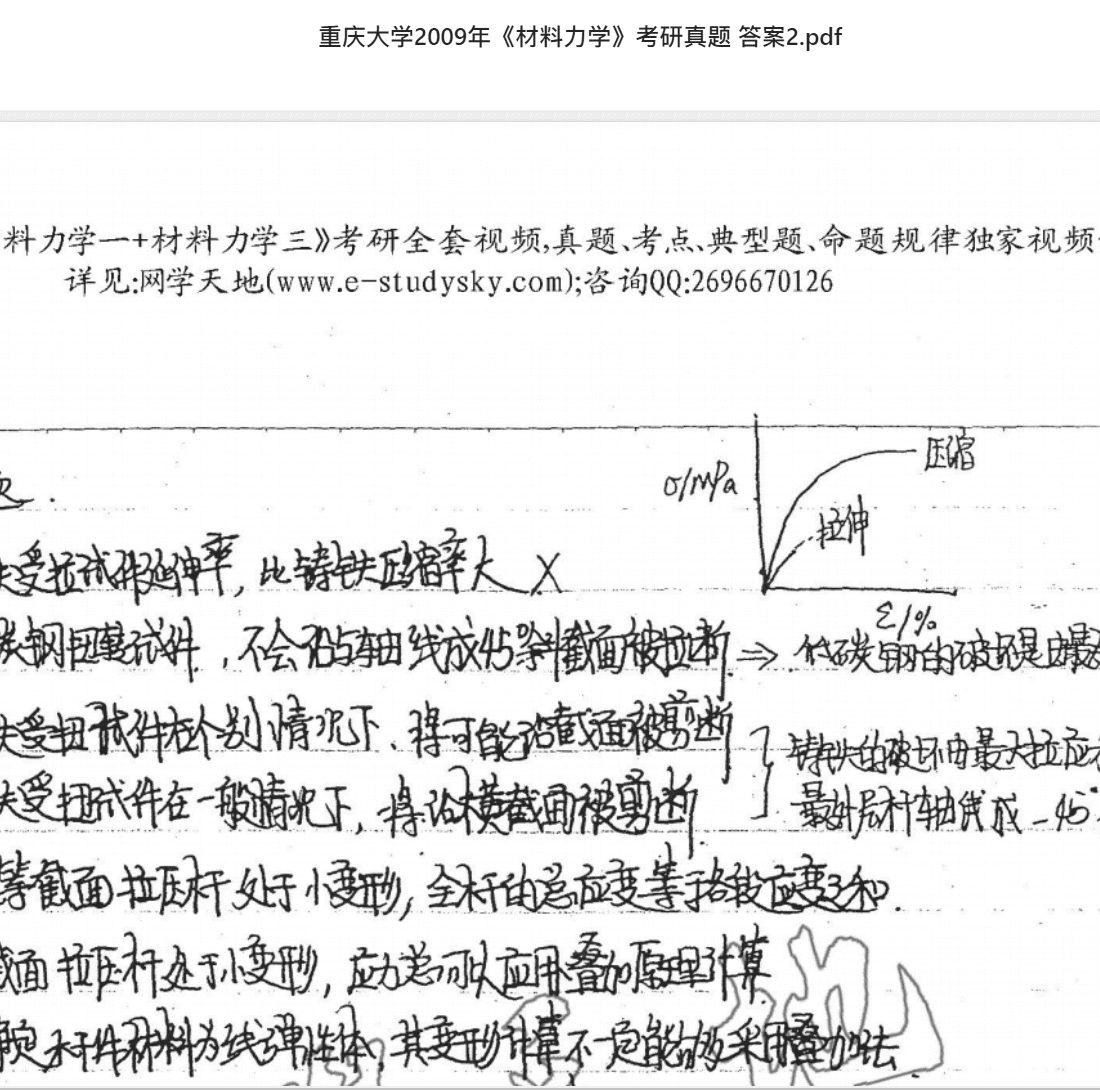 重庆大学2009年《材料力学》考研真题 答案2.pdf
料力学一+材料力学三》考研全套视频,真题、考点、典型题、命题规律独家视频
详见:网学天地(www.e-studysky.com);咨询QQ:2696670126
压缩
σ/MPa
拉伸
受拉试件延伸率, 比铸铁压缩率大 X
ε/%
钢扭转试件, 不会沿与轴线成45°斜截面被拉断 ⇒ 低碳钢的破坏是由最
受扭试件在个别情况下, 将可能沿截面被剪断
铸铁的破坏由最大拉应
受扭试件在一般情况下, 将沿横截面被剪断
最外层杆轴线成-45°
等截面拉压杆处于小变形, 全杆的总应变等于各段应变之和.
面拉压杆处于小变形, 应力总可以应用叠加原理计算
杆件材料为线弹性体, 其变形计算不一定能够采用叠加法.